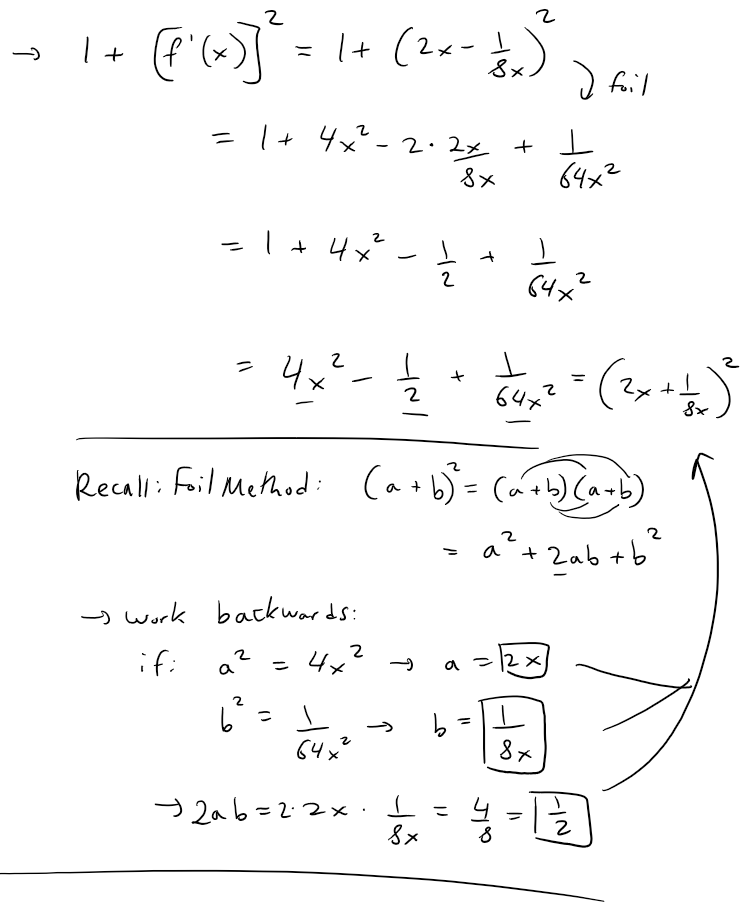 → 1 + [f'(x)]² = 1 + (2x - 1/8x)²
foil
= 1 + 4x² - 2 · 2x/8x + 1/64x²
= 1 + 4x² - 1/2 + 1/64x²
= 4x² - 1/2 + 1/64x² = (2x + 1/8x)²
Recall: Foil Method: (a + b)² = (a+b)(a+b)
= a² + 2ab + b²
→ work backwards:
if: a² = 4x² → a = 2x
b² = 1/64x² → b = 1/8x
→ 2ab = 2·2x · 1/8x = 4/8 = 1/2